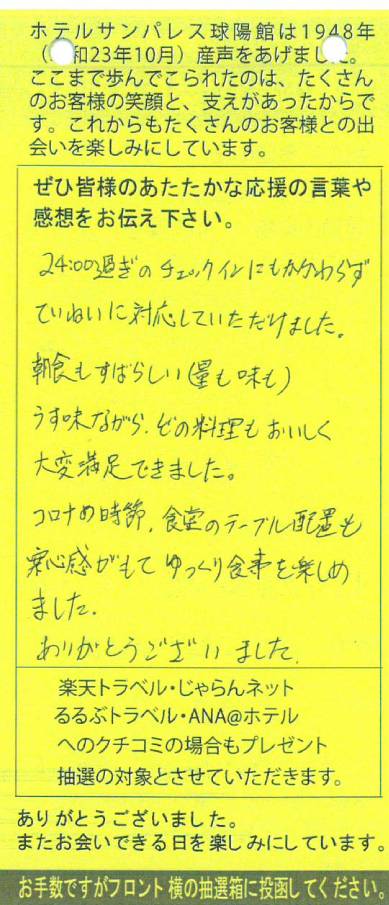 ホテルサンパレス球陽館は1948年
（ 和23年10月）産声をあげまし 。
ここまで歩んでこられたのは、たくさん
のお客様の笑顔と、支えがあったからで
す。これからもたくさんのお客様との出
会いを楽しみにしています。
ぜひ皆様のあたたかな応援の言葉や
感想をお伝え下さい。
24:00過ぎのチェックインにもかかわらず
ていねいに対応していただけました。
朝食もすばらしい(量も味も)
うす味ながら、どの料理もおいしく
大変満足できました。
コロナの時節、食堂のテーブル配置も
安心感がもてゆっくり食事を楽しめ
ました.
ありがとうございました.
楽天トラベル・じゃらんネット
るるぶトラベル・ANA@ホテル
へのクチコミの場合もプレゼント
抽選の対象とさせていただきます。
ありがとうございました。
またお会いできる日を楽しみにしています。
お手数ですがフロント横の抽選箱に投函してください。